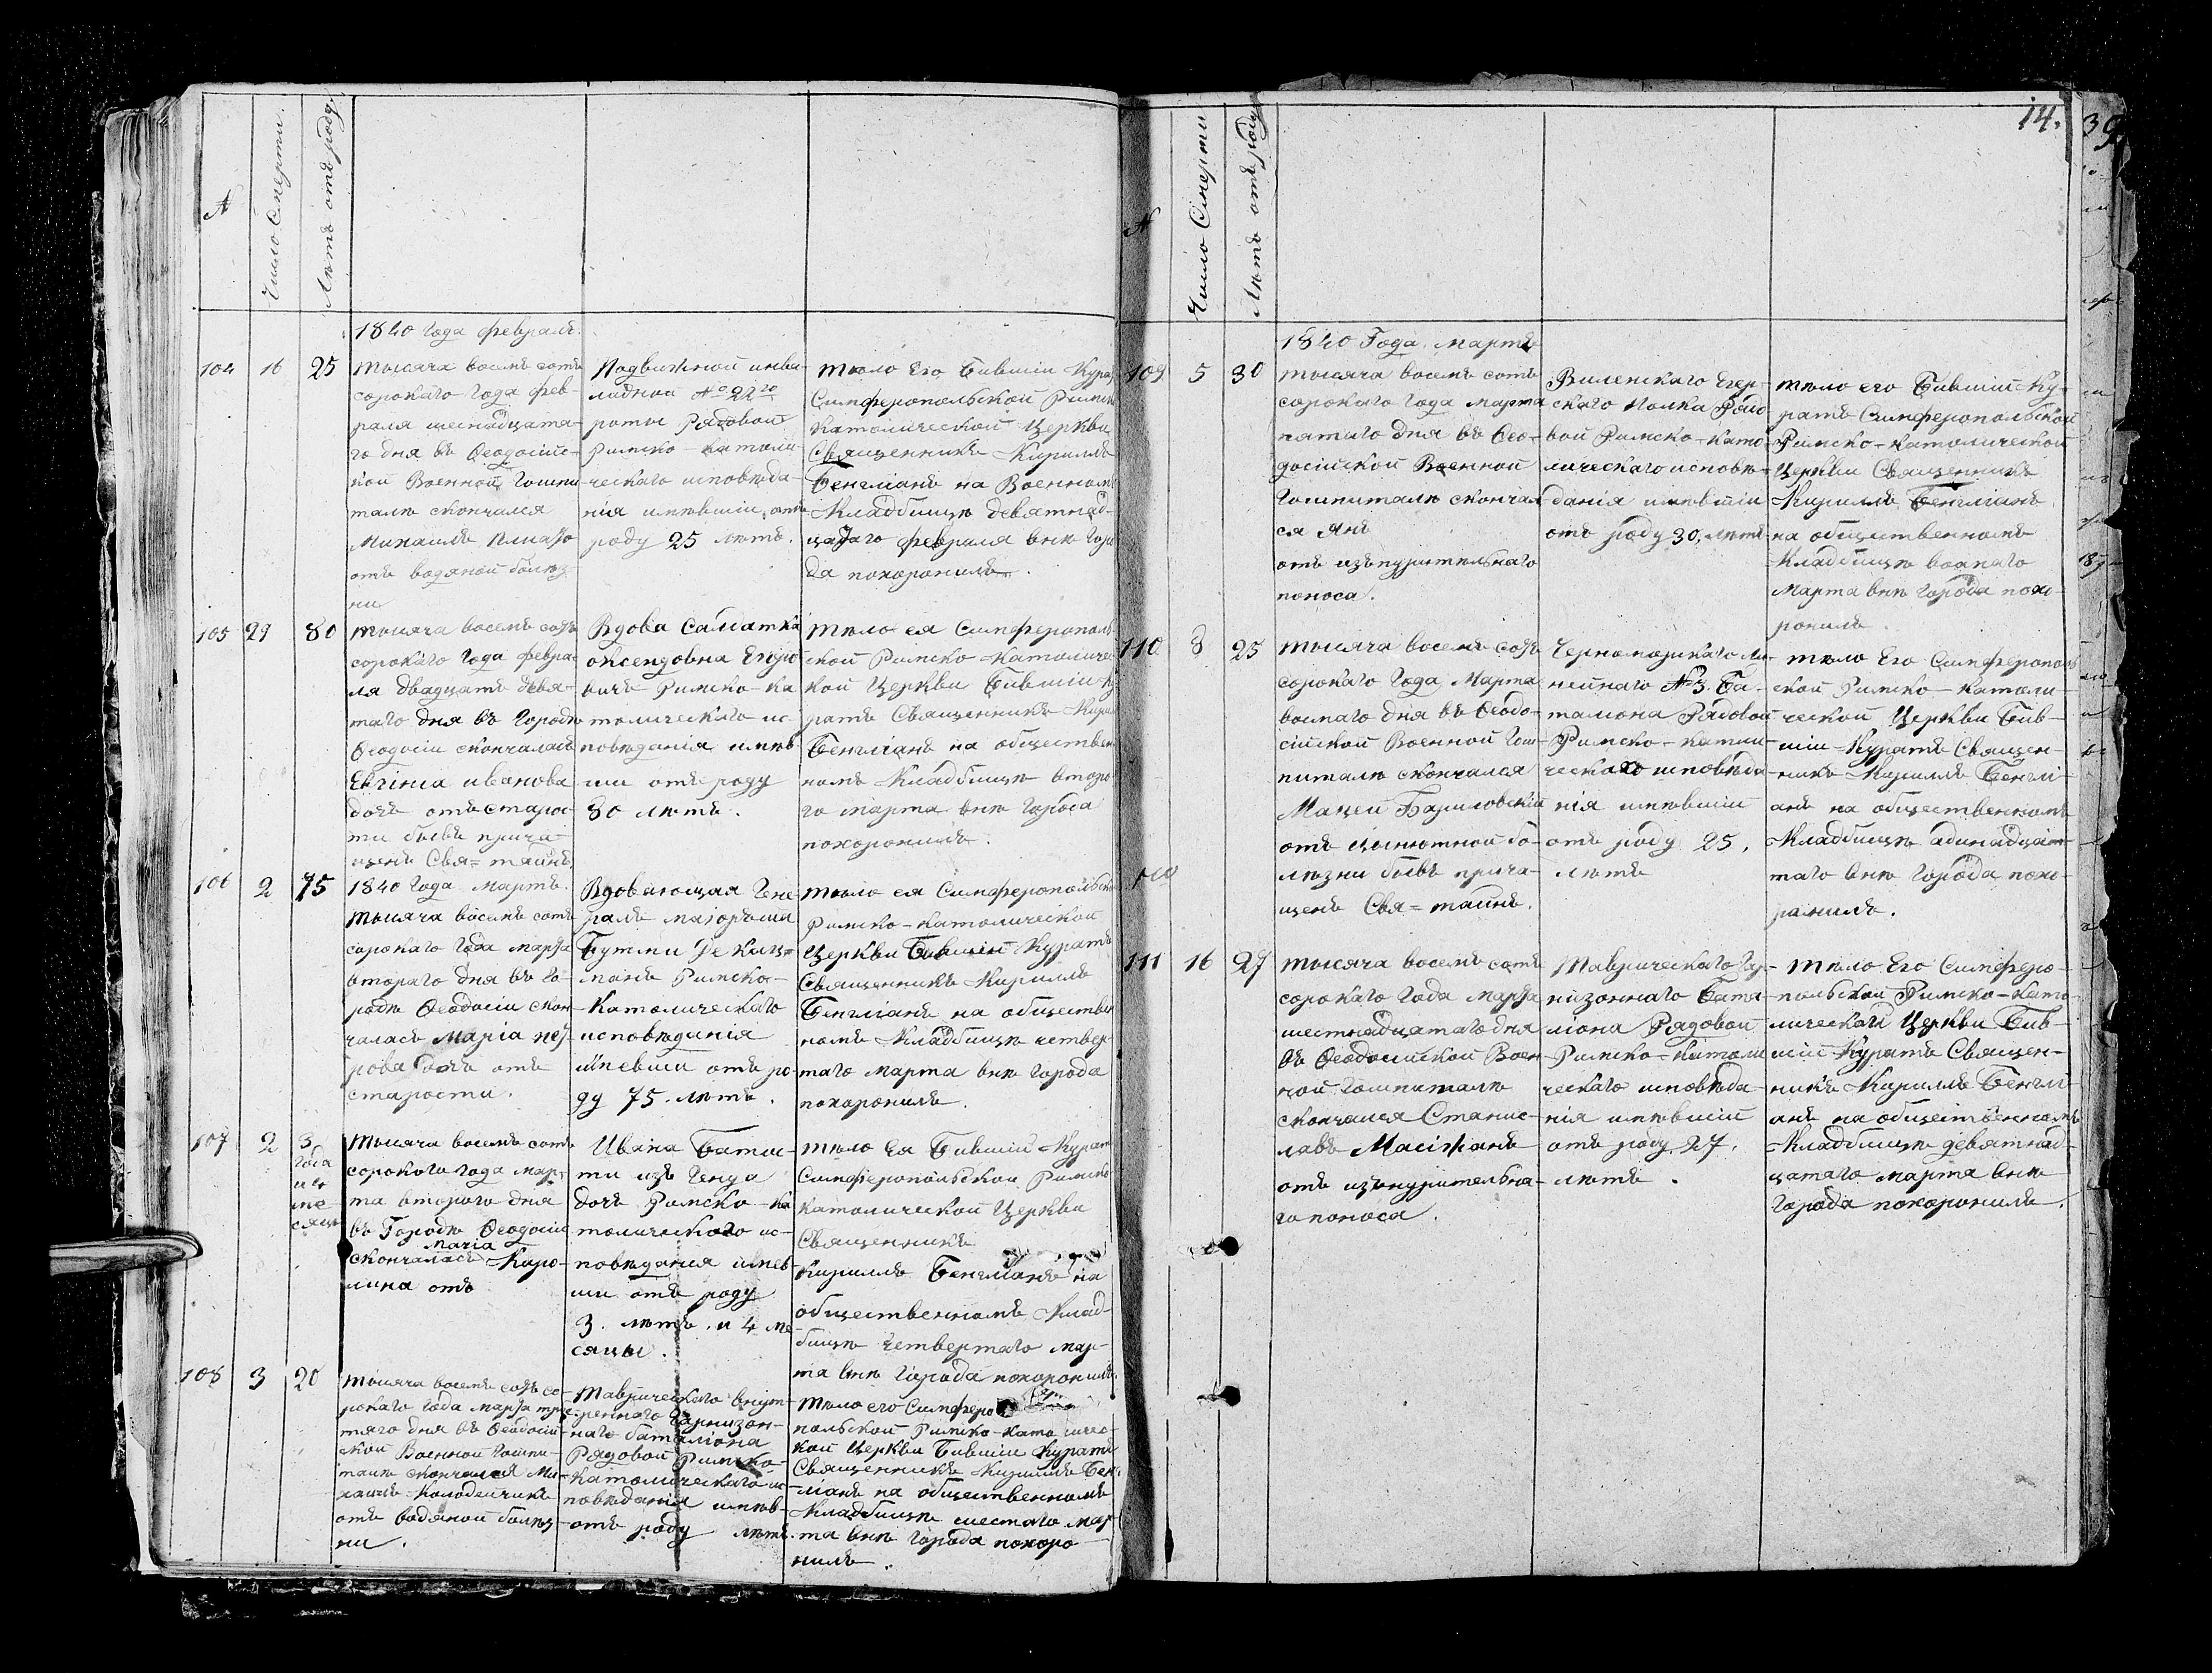 №
Число Смерти
Лѣтъ отъ роду
1840 Года февраль.
104
16
25
тысяча восемь сотъ
сорокаго Года фев-
раля шеснадцата-
го дня въ Ѳеодосійс-
кой Военной Гошпи
талѣ скончался
Михаилъ
отъ водяной болѣз
ни
Подвижной инва-
лидной №22го
роты Рядовой
Римско-католи-
ческаго исповѣда-
нія имѣвшіи отъ
роду 25 лѣтъ.
тѣло Его Бившіи Кура
Симферопольской Римск
католической Церкви
Священникъ Кириллъ
Бенгліанъ на Военном
Кладбищѣ девятнад-
цатаго февраля внѣ Горо
да похоронилъ.
105
29
80
тысяча восемь сотъ
сорокаго Года февра-
ля двадцать девя-
таго дня въ Городѣ
Ѳеодосіи скончалась
Евгиніа иванова
дочъ отъ старос-
ти бывъ прича-
щенъ Свя=тайнъ
Вдова
Римско-ка
толическаго ис-
повѣданія имѣв
ши отъ роду
80 лѣтъ.
тѣло ея Симферополь
ской Римско-Католичес
кой Церкви Бившіи Ку
ратъ Священникъ Кирил
Бенгліанъ на обществен
номъ Кладбищѣ второ
го марта внѣ Города
похоронилъ.
106
2
75
1840 Года Мартъ.
тысяча восемь сотъ
сорокаго Года марта
втораго дня въ Го-
родѣ Ѳеодосіи скон-
чалась Маріа пет
рова дочъ отъ
старости.
Вдовающая Гене
ралъ маіорьши
Римско-
Католическаго
исповѣданія
имѣвши отъ ро-
ду 75. лѣтъ.
тѣло ея Симферопольско
Римско-католической
Церкви Бившіи Куратъ
Священникъ Кириллъ
Бенгліанъ на обществен
номъ Кладбищѣ четвер
таго марта внѣ Города
похоронилъ.
107
2
3
года
и 4
ме
сяцы
тысяча восемь сотъ
сорокаго года мар-
та втораго дня
въ Городѣ Ѳеодосіи
maria
скончалась Каро-
лина отъ
Ивана Батис-
ти изъ Генуа
дочъ Римско-ка
толическаго ис-
повѣданія имев-
ши отъ роду
3. лѣтъ. и 4 ме
сяцы.
тѣло Ея Бившій Курат
Симферопольской Римско
католической Церкви
Священникъ
Кириллъ Бенгліанъ на
общественномъ Клад-
бищѣ четвертаго мар-
та внѣ Города похоронилъ.
108
3
20
тысяча восемь сотъ со-
рокаго года марта тре-
тяго дня въ Ѳеодосій
ской Военной Гошпи-
талѣ скончался Ми-
хаилъ Колодейчикъ
отъ водяной болѣз
ни.
Таврическаго внут-
ренняго Гарнизон-
наго баталіона
Рядовой Римско-
католическаго ис
повѣданія имѣв-
отъ роду лѣтъ.
тѣло его Симферо
польской Римско-като личес-
кой Церкви Бившіи Куратъ
Священникъ Кириллъ Бен
гліанъ на общественномъ
Кладбищѣ шестаго мар
та внѣ Города похоро-
нилъ.
14.
39
№
Число Смерти
Лѣтъ отъ роду
1840 Года. Мартъ
109
5
30
тысяча восемь сотъ
сорокаго Года Марта
пятаго дня въ Ѳео-
досійской Военной
Гошпиталѣ скончал
ся Янъ
отъ изъпурительнаго
поноса.
Виленскаго Егер-
скаго Полка Рядо
вой Римско-като
лическаго исповѣ-
данія имѣвшіи
отъ роду 30. лѣтъ
тѣло его Бившіи Ку-
ратъ Симферопольской
Римско-католической
Церкви Священникъ
Кириллъ Бенгліанъ
на общественномъ
Кладбищѣ
Марта внѣ Города похо-
ронилъ.
110
8
25
тысяча восемь сотъ
сорокаго Года Марта
восмаго дня въ Ѳеодо-
сійской Военной Гош-
питалѣ скончался
Мацеи
отъ бо-
лѣзни бывъ прича-
щенъ Свя=тайнъ.
Черноморскаго Ли-
нейнаго №3. Ба-
таліона Рядовой
Римско-католи
ческаго исповѣда
нія имѣвшіи
отъ роду 25.
лѣтъ
тѣло Его Симферополь
ской Римско-католи-
ческой Церкви Бив-
шіи Куратъ Священ-
никъ Кириллъ Бенглі-
анъ на общественномъ
Кладбищѣ адинадцат
таго внѣ Города похо-
ранилъ.
111
16
27
тысяча восемь сотъ
сорокаго Года Марта
шестнадцатаго дня
въ Ѳеодосийской Воен
ной Гошпиталѣ
скончался Станис-
лавъ
отъ изъпурительна-
го поноса.
Таврическаго Гар-
низоннаго Бата
ліона Рядовой
Римско=Католи
ческаго исповѣда-
нія имѣвшіи
отъ роду 27.
лѣтъ.
тѣло Его Симферо-
польской Римско-като-
лической Церкви Бив-
шіи Куратъ Священ-
никъ Кириллъ Бенглі-
анъ на общественномъ
Кладбищѣ девятнад-
цатаго марта внѣ
Города похоронилъ.